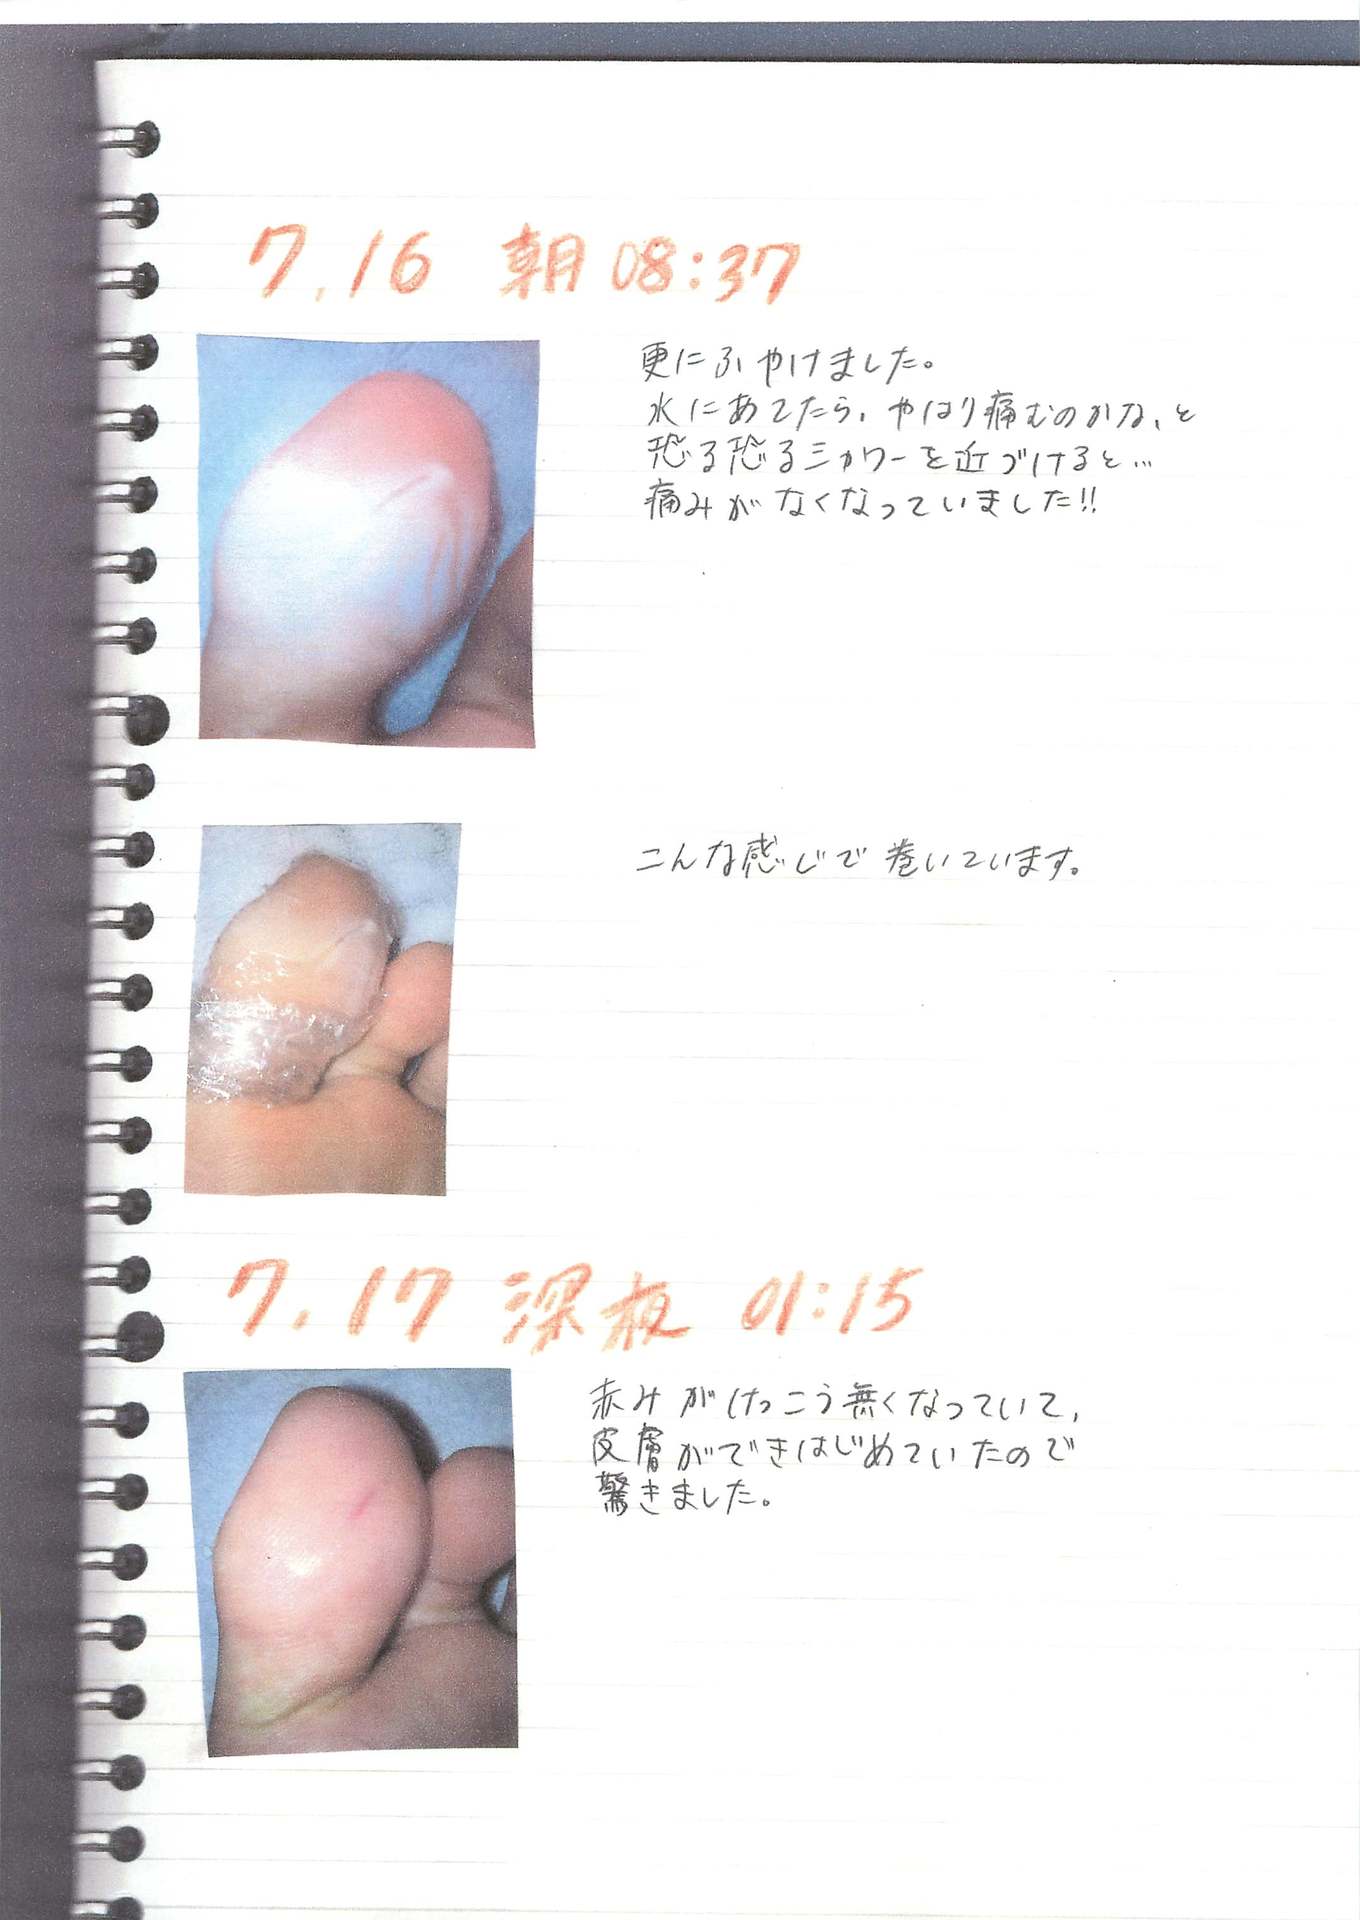 7.16 朝 08:37
更にふやけました。
水にあてたら、やはり痛むのかな、と
恐る恐るシャワーを近づけると…
痛みがなくなっていました!!
こんな感じで巻いています。
7.17 深夜 01:15
赤みがけっこう無くなっていて、
皮膚ができはじめていたので
驚きました。